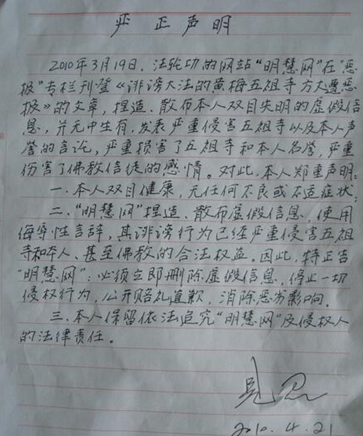 严正声明
2010年3月19日，法轮功的网站“明慧网”在“恶
报”专栏刊登《诽谤大法的黄梅五祖寺方丈遭恶
报》的文章，捏造、散布本人双目失明的虚假信
息，并无中生有，发表严重侵害五祖寺以及本人声
誉的言论，严重损害了五祖寺和本人名誉，严重
伤害了佛教信徒的感情。对此，本人郑重声明：
一.本人双目健康，无任何不良或不适症状；
二.“明慧网”捏造、散布虚假信息，使用
侮辱性言辞，其诽谤行为已经严重侵害五祖
寺和本人、甚至佛教的合法权益。因此，特正告
“明慧网”：必须立即删除虚假信息，停止一切
侵权行为，公开赔礼道歉，消除恶劣影响。
三.本人保留依法追究“明慧网”及侵权人
的法律责任。
见忍
2010.4.21